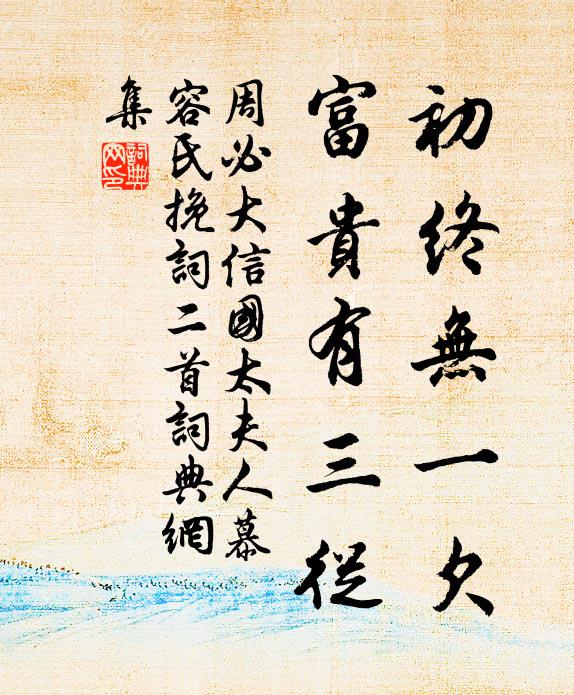 初終無一欠
富貴有三從
周必大信國太夫人慕
容氏挽詞二首詞典網
集
詞典網印